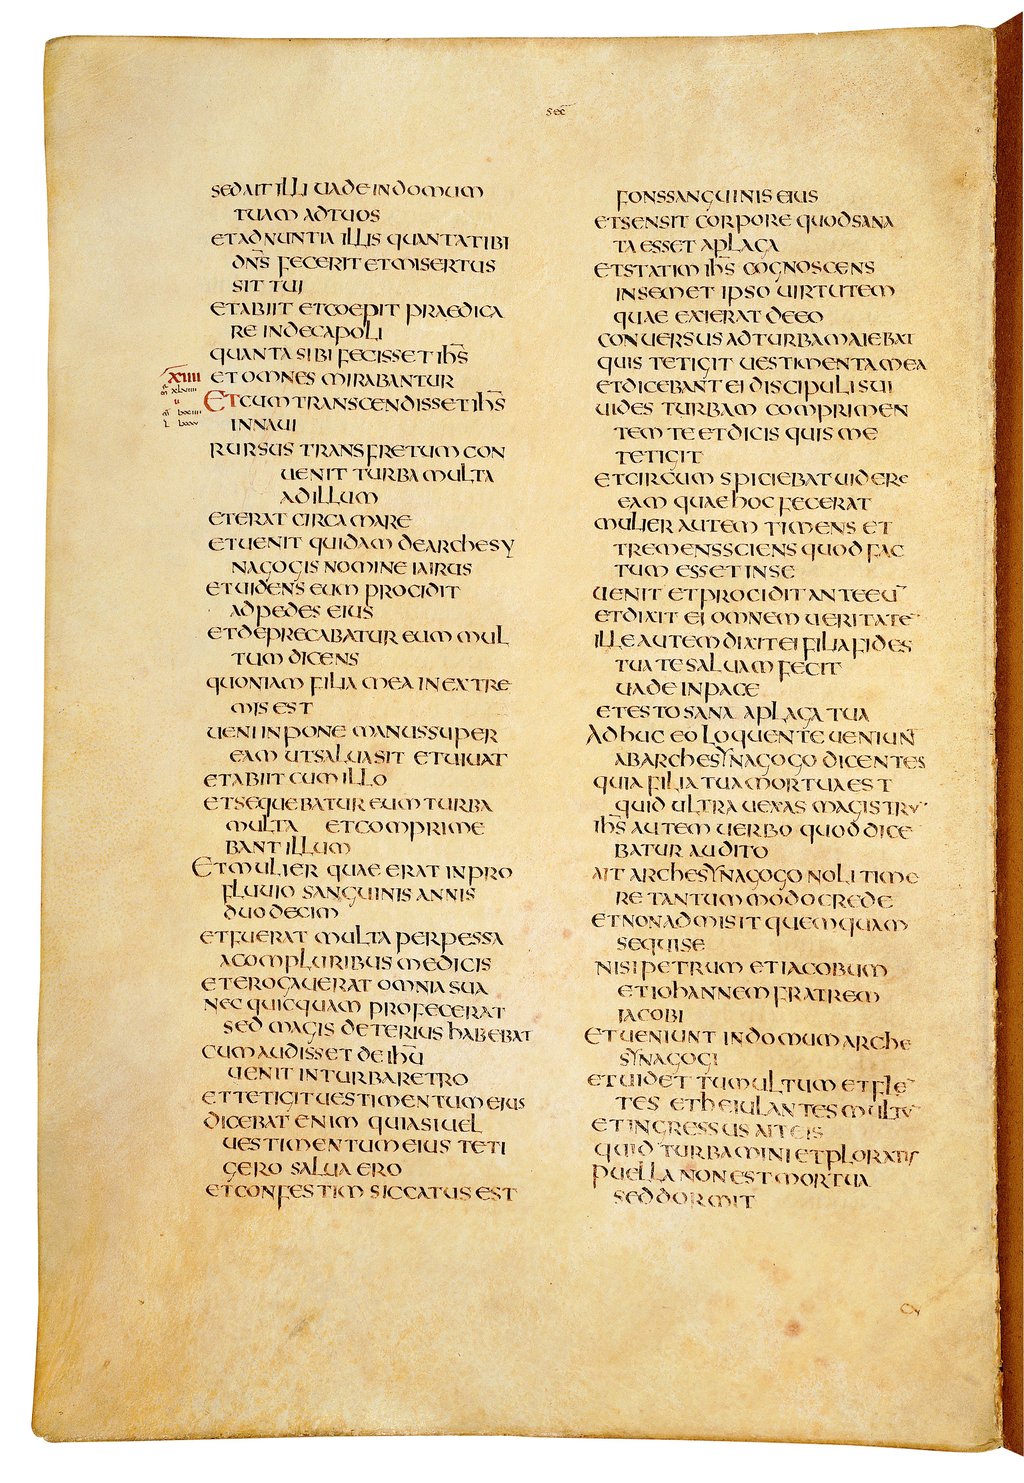 sec̄
SEDAIT ILLI UADE IN DOMUM
TUAM AD TUOS
ET ADNUNTIA ILLIS QUANTA TIBI
DN̄S FECERIT ET MISERTUS
SIT TUI
ET ABIIT ET COEPIT PRAEDICA
RE IN DECAPOLI
QUANTA SIBI FECISSET IH̄S
XIIII ET OMNES MIRABANTUR
ET CUM TRANSCENDISSET IH̄S
IN NAUI
RURSUS TRANS FRETUM CON
UENIT TURBA MULTA
AD ILLUM
ET ERAT CIRCA MARE
ET UENIT QUIDAM DE ARCHESY
NAGOGIS NOMINE IAIRUS
ET UIDENS EUM PROCIDIT
AD PEDES EIUS
ET DEPRECABATUR EUM MUL
TUM DICENS
QUONIAM FILIA MEA IN EXTRE
MIS EST
UENI INPONE MANUS SUPER
EAM UT SALUA SIT ET UIUAT
ET ABIIT CUM ILLO
ET SEQUEBATUR EUM TURBA
MULTA ET COMPRIME
BANT ILLUM
ET MULIER QUAE ERAT IN PRO
FLUUIO SANGUINIS ANNIS
DUODECIM
ET FUERAT MULTA PERPESSA
A COMPLURIBUS MEDICIS
ET EROGAUERAT OMNIA SUA
NEC QUICQUAM PROFECERAT
SED MAGIS DETERIUS HABEBAT
CUM AUDISSET DE IH̄U
UENIT IN TURBA RETRO
ET TETIGIT UESTIMENTUM EIUS
DICEBAT ENIM QUIA SI UEL
UESTIMENTUM EIUS TETI
GERO SALUA ERO
ET CONFESTIM SICCATUS EST
FONS SANGUINIS EIUS
ET SENSIT CORPORE QUOD SANA
TA ESSET A PLAGA
ET STATIM IH̄S COGNOSCENS
IN SEMET IPSO UIRTUTEM
QUAE EXIERAT DE EO
CONUERSUS AD TURBAM AIEBAT
QUIS TETIGIT UESTIMENTA MEA
ET DICEBANT EI DISCIPULI SUI
UIDES TURBAM COMPRIMEN
TEM TE ET DICIS QUIS ME
TETIGIT
ET CIRCUMSPICIEBAT UIDERE
EAM QUAE HOC FECERAT
MULIER AUTEM TIMENS ET
TREMENS SCIENS QUOD FAC
TUM ESSET IN SE
UENIT ET PROCIDIT ANTE EU¯
ET DIXIT EI OMNEM UERITATE¯
ILLE AUTEM DIXIT EI FILIA FIDES
TUA TE SALUAM FECIT
UADE IN PACE
ET ESTO SANA A PLAGA TUA
ADHUC EO LOQUENTE UENIUNT
AB ARCHESYNAGOGO DICENTES
QUIA FILIA TUA MORTUA EST
QUID ULTRA UEXAS MAGISTRU¯
IH̄S AUTEM UERBO QUOD DICE
BATUR AUDITO
AIT ARCHESYNAGOGO NOLI TIME
RE TANTUMMODO CREDE
ET NON ADMISIT QUEMQUAM
SEQUI SE
NISI PETRUM ET IACOBUM
ET IOHANNEM FRATREM
IACOBI
ET UENIUNT IN DOMUM ARCHE
SYNAGOGI
ET UIDET TUMULTUM ET FLE¯
TES ET HEIULANTES MULTU¯
ET INGRESSUS AIT EIS
QUID TURBAMINI ET PLORATIS
PUELLA NON EST MORTUA
SED DORMIT